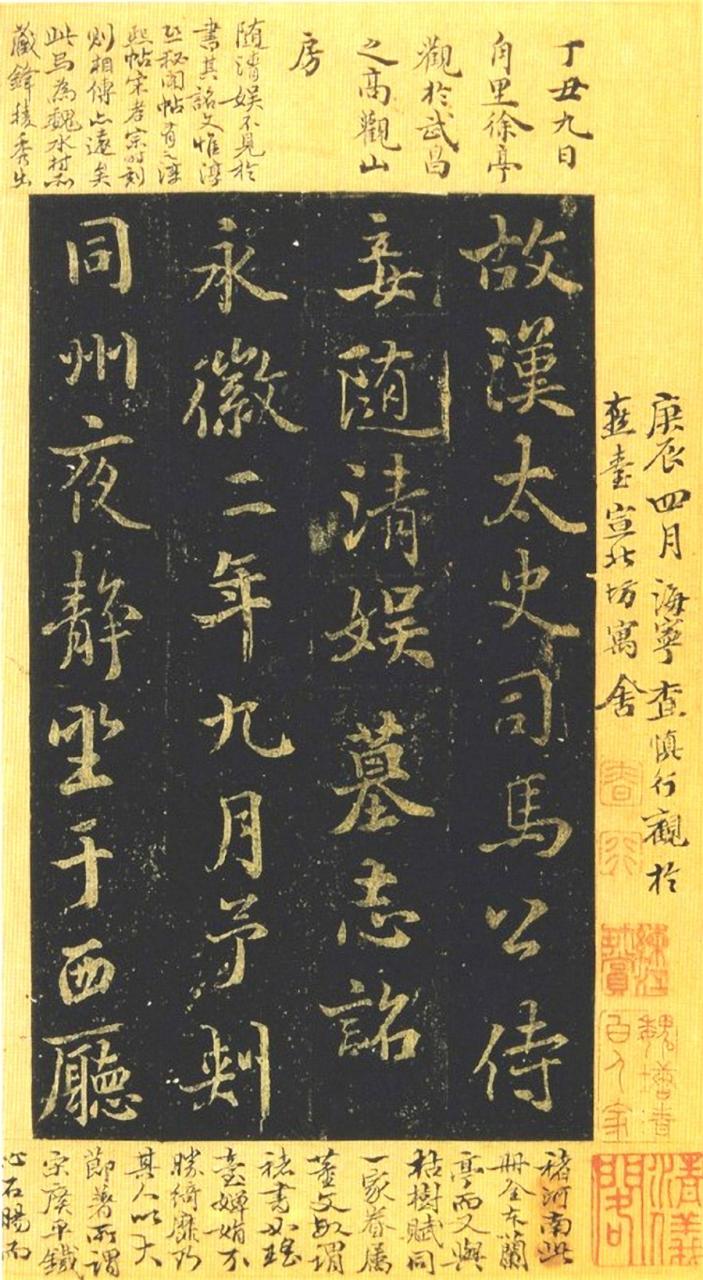 丁丑九日
甪里徐亭
觀於武昌
之高觀山
房
随清娱不見於
書其銘文惟淳
熙秘閣帖有之淳
熙帖宋孝宗時刻
則相傳亦遠矣
此馬為魏水村
藏鋒稜秀出
庚辰四月海寧查慎行觀於
燕臺宣北坊寓舍
故漢太史司馬公侍
妾随清娱墓志銘
永徽二年九月予判
同州夜静坐于西廳
褚河南此
冊全本蘭
亭而又與
枯樹賦同
一家眷属
董文敏謂
褚書如瑤
臺嬋娟不
勝綺靡乃
其人以大
節著所謂
宋廣平鐵
心石腸而
清儀閣